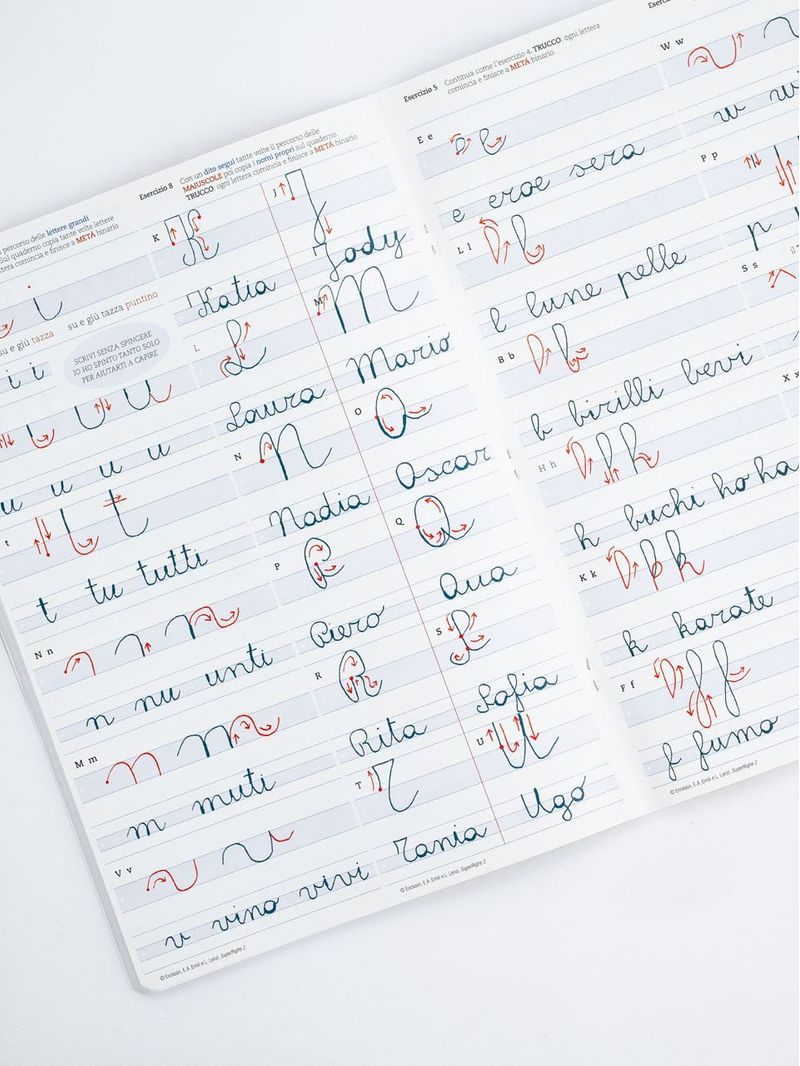 percorso delle lettere grandi
Sul quaderno copia tante volte lettere
comincia e finisce a METÀ binario
su e giù tazza su e giù tazza puntino
SCRIVI SENZA SPINGERE
IO HO SPINTO TANTO SOLO
PER AIUTARTI A CAPIRE
i i
u u u u
t
t tu tutti
N n
n nu unti
M m
m muti
V v
v vino vivi
© Erickson, E.A. Emili e L. Lenzi, SuperRighe 2
Esercizio 8 Con un dito segui tante volte il percorso delle
MAIUSCOLE poi copia i nomi propri sul quaderno.
TRUCCO: ogni lettera comincia e finisce a METÀ binario
K
Katia
L
Laura
N
Nadia
P
Piero
R
Rita
T
Tania
J
Jody
M
Mario
O
Oscar
Q
Qua
S
Sofia
U
Ugo
© Erickson, E.A. Emili e L. Lenzi, SuperRighe 2
Esercizio 5 Continua come l'esercizio 4. TRUCCO: ogni lettera
comincia e finisce a METÀ binario.
E e
e eroe sera
L l
l lune pelle
B b
b birilli bevi
H h
h buchi ho ha
K k
k karate
F f
f fumo
© Erickson, E.A. Emili e L. Lenzi, SuperRighe 2
W w
w
P p
p
S s
X x